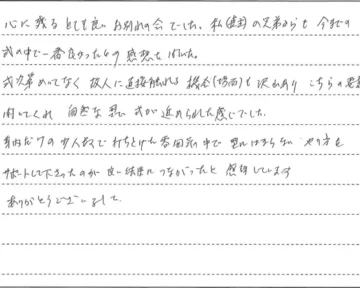 心に残るとても良いお別れの会でした。私(妻)の兄弟からも今までの
式の中で一番良かったとの感想を頂いた。
式次第めいてなく故人に直接触れる機会(場面)も沢山ありこちらの意
聞いてくれ 自然な思い 式が進められた感じでした。
身内だけの少人数で打ちとけた雰囲気の中で 型にはまらないやり方を
サポートして下さったのが良い結果につながったと感謝しています
ありがとうございました。